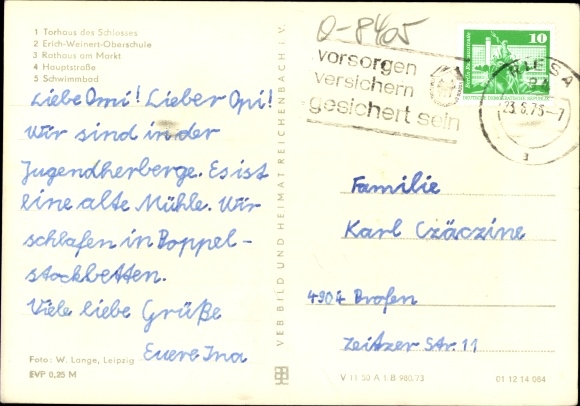 1 Torhaus des Schlosses
2 Erich-Weinert-Oberschule
3 Rathaus am Markt
4 Hauptstraße
5 Schwimmbad
Liebe Omi! Lieber Opi!
Wir sind in der
Jugendherberge. Es ist
eine alte Mühle. Wir
schlafen in Doppel-
stockbetten.
Viele liebe Grüße
Euere Ina
Foto: W. Lange, Leipzig
EVP 0,25 M
VEB BILD UND HEIMAT REICHENBACH I. V.
O-8405
vorsorgen
versichern
gesichert sein
10
RIESA
23.6.75-7
a
Familie
Karl Czäczine
4907 Profen
Zeitzer Str. 11
V 11 50 A 1 B 980/73
01 12 14 084